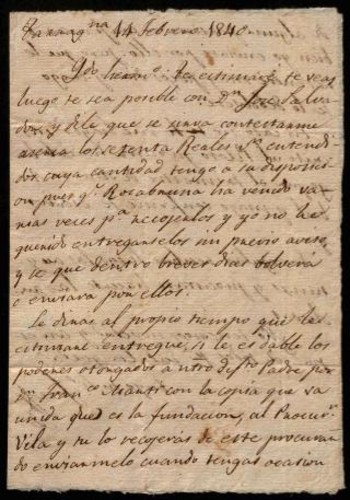 Tarrag.na 14 Febrero 1840.
Qdo herm.o: Te estimaré te veas
luego te sea posible con D.n José Salva
dor, y dile que se sirva contestarme
acerca los setenta Reales v.n entendi
dos cuya cantidad tengo a su disposici
on pues q.e Rocabruna ha venido va
rias veces p.a recogerlos y yo no he
querido entregarselos sin previo aviso,
y se que dentro breves dias bolverá
o enviara por ellos.
Le diras al propio tiempo que le
estimaré entregue, si le es dable los
poderes otorgados a ntro Padre por
D.n Fran.co con la copia que va
unida que es la fundacion, al Procur.r
Vila y tu lo recogeras de este procuran
do enviarmelo cuando tengas ocasion